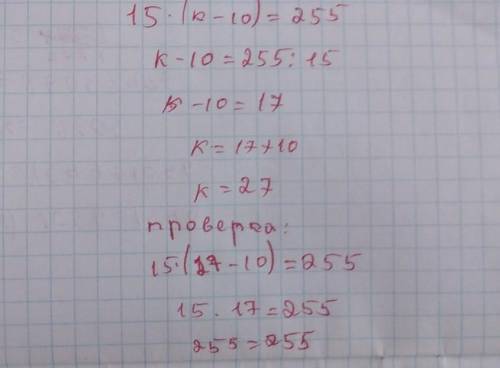 15·(к-10)=255
к-10=255:15
к-10=17
к=17+10
к=27
проверка:
15·(27-10)=255
15·17=255
255=255